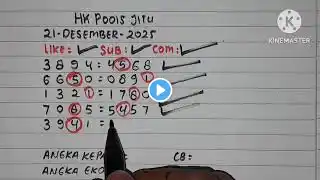 HK POOLS JITU
21-DESEMBER-2025
LIKE: SUB: COM:
3 8 9 4 = 4 5 6 8
6 6 5 0 = 0 8 9 1
1 3 2 1 = 1 7 6 0
7 0 8 5 = 5 4 5 7
3 9 4 1 =
ANGKA KEPA
CB:
ANGKA EKO
KINEMASTER